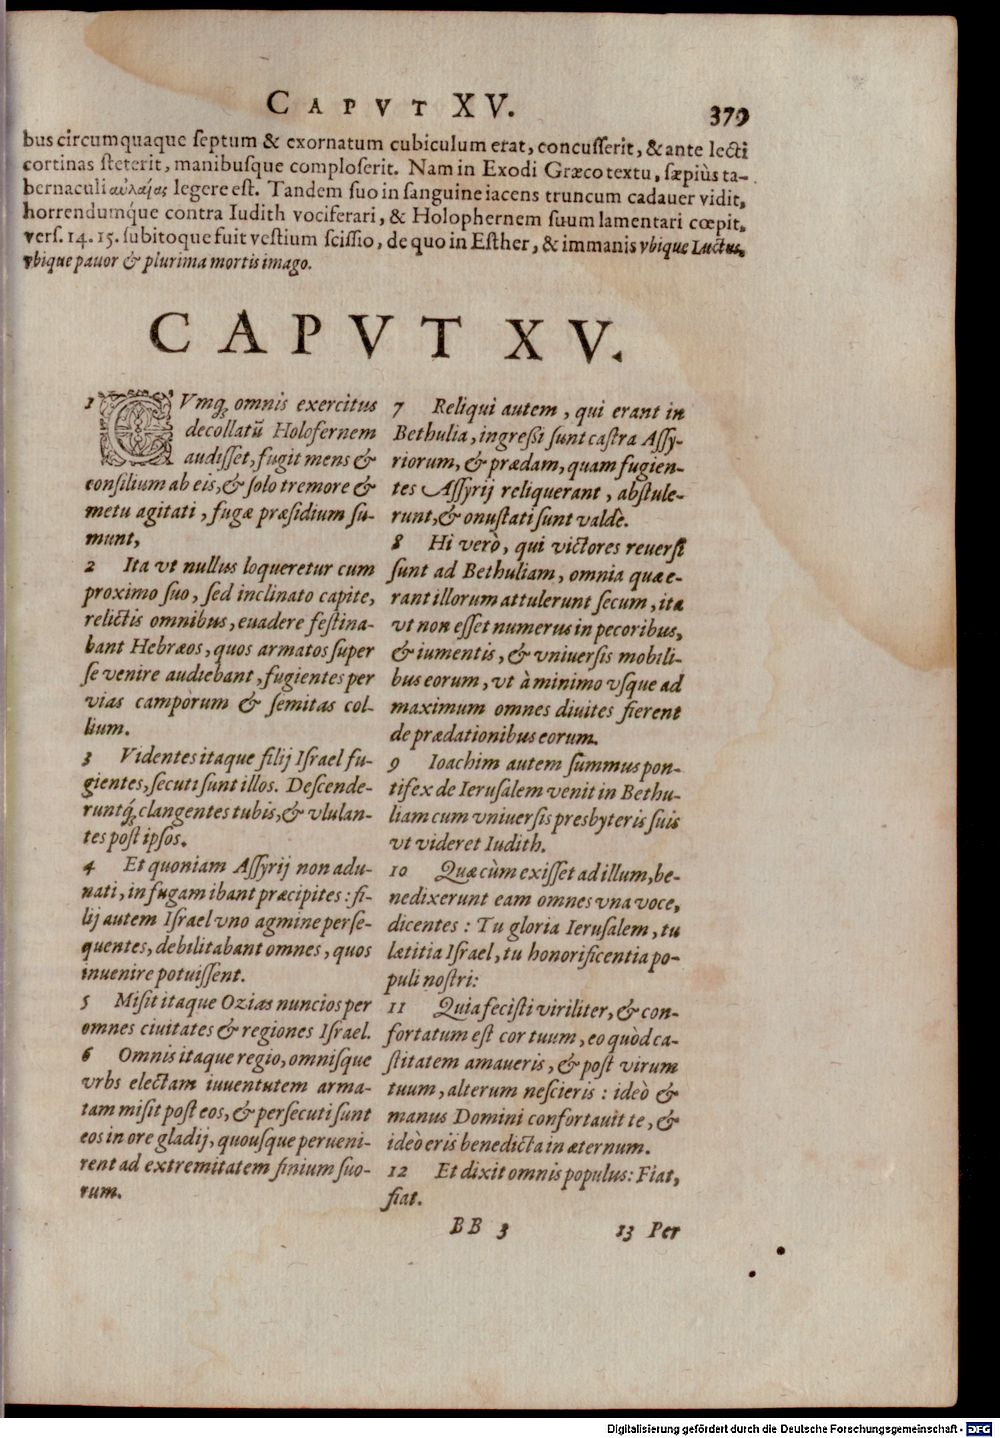 CAPVT XV. 379
bus circumquaque ſeptum & exornatum cubiculum erat, concuſſerit, & ante lecti
cortinas ſteterit, manibusque comploſerit. Nam in Exodi Græco textu, ſæpiùs ta-
bernaculi αὐλαίας legere eſt. Tandem ſuo in ſanguine iacens truncum cadauer vidit,
horrendumq́ue contra Iudith vociferari, & Holophernem ſuum lamentari cœpit,
verſ. 14. 15. ſubitoque fuit veſtium ſciſſio, de quo in Eſther, & immanis vbique Luctus,
vbique pauor & plurima mortis imago.
CAPVT XV.
1 CVmq; omnis exercitus
decollatũ Holofernem
audiſſet, fugit mens &
conſilium ab eis, & ſolo tremore &
metu agitati, fugæ præſidium ſu-
munt,
2 Ita vt nullus loqueretur cum
proximo ſuo, ſed inclinato capite,
relictis omnibus, euadere feſtina-
bant Hebræos, quos armatos ſuper
ſe venire audiebant, fugientes per
vias camporum & ſemitas col-
lium.
3 Videntes itaque filij Iſrael fu-
gientes, ſecuti ſunt illos. Deſcende-
runtq́; clangentes tubis, & vlulan-
tes poſt ipſos.
4 Et quoniam Aſſyrij non adu-
nati, in fugam ibant præcipites: fi-
lij autem Iſrael vno agmine perſe-
quentes, debilitabant omnes, quos
inuenire potuiſſent.
5 Miſit itaque Ozias nuncios per
omnes ciuitates & regiones Iſrael.
6 Omnis itaque regio, omniſque
vrbs electam iuuentutem arma-
tam miſit poſt eos, & perſecuti ſunt
eos in ore gladij, quouſque perueni-
rent ad extremitatem finium ſuo-
rum.
7 Reliqui autem, qui erant in
Bethulia, ingreßi ſunt caſtra Aſſy-
riorum, & prædam, quam fugien-
tes Aſſyrij reliquerant, abſtule-
runt, & onuſtati ſunt valdè.
8 Hi verò, qui victores reuerſi
ſunt ad Bethuliam, omnia quæ e-
rant illorum attulerunt ſecum, ita
vt non eſſet numerus in pecoribus,
& iumentis, & vniuerſis mobili-
bus eorum, vt à minimo vſque ad
maximum omnes diuites fierent
de prædationibus eorum.
9 Ioachim autem ſummus pon-
tifex de Ieruſalem venit in Bethu-
liam cum vniuerſis presbyteris ſuis
vt videret Iudith.
10 Quæ cùm exiſſet ad illum, be-
nedixerunt eam omnes vna voce,
dicentes: Tu gloria Ieruſalem, tu
lætitia Iſrael, tu honorificentia po-
puli noſtri:
11 Quia feciſti viriliter, & con-
fortatum eſt cor tuum, eo quòd ca-
ſtitatem amaueris, & poſt virum
tuum, alterum neſcieris: ideò &
manus Domini confortauit te, &
ideò eris benedicta in æternum.
12 Et dixit omnis populus: Fiat,
fiat.
BB 3 13 Per
Digitalisierung gefördert durch die Deutsche Forschungsgemeinschaft - DFG